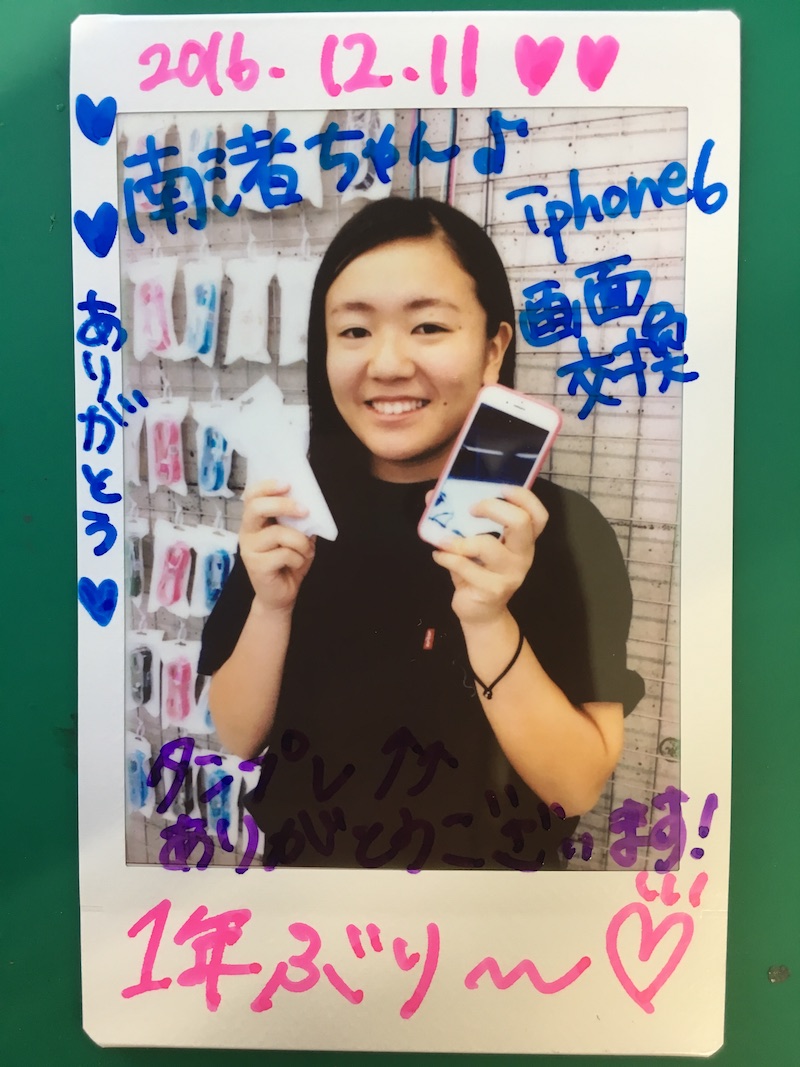 2016.12.11 ♥♥
南渚ちゃん♪
iphone6
画面
交換
♥♥ありがとう♥
タンプレ↑↑
ありがとうございます!
1年ぶり〜♡